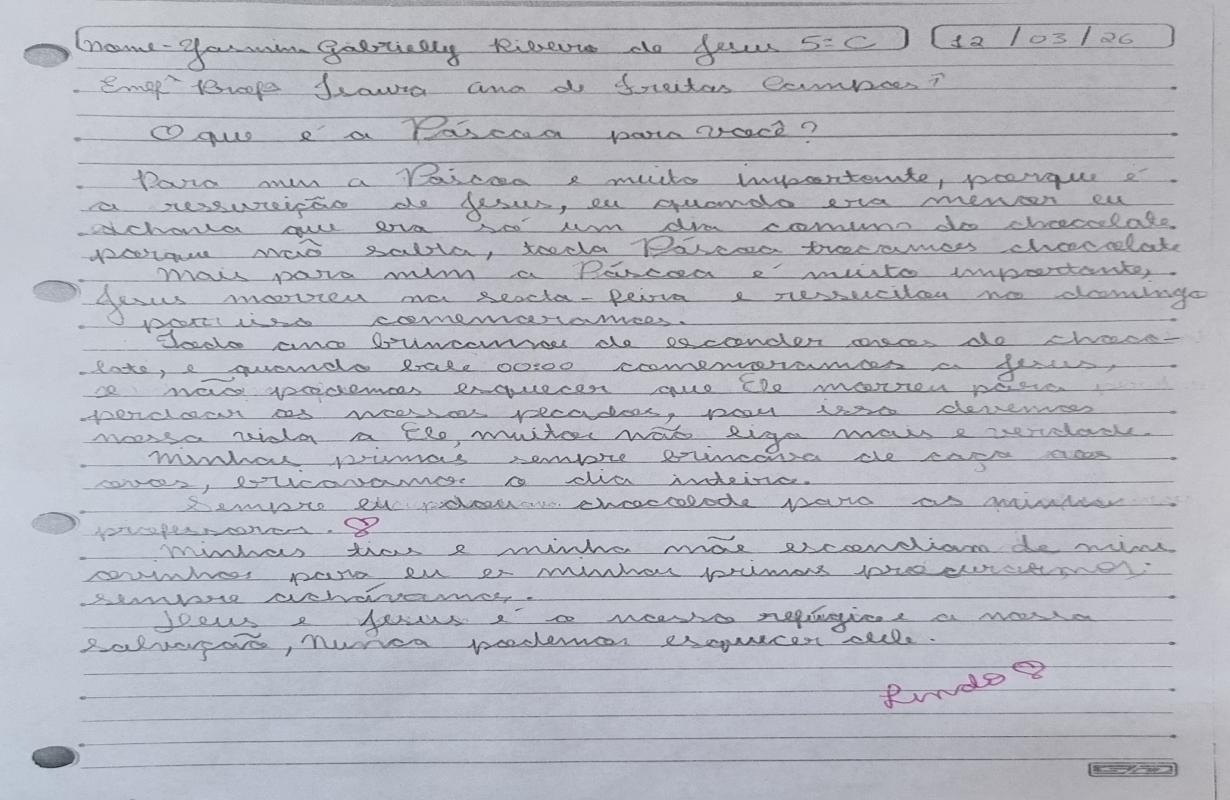 Nome - Yasmin Gabrielly Ribeiro de Jesus 5º C 12/03/26
Emefª Profª Isaura ana de Freitas Campos
O que é a Páscoa para você?
Para mim a Páscoa e muito importante, porque é
a ressureição de Jesus, eu quando era menor eu
achava que era só um dia comum do chocolate
porque não sabia, toda Páscoa trocamos chocolate
Mais para mim a Páscoa é muito importante,
Jesus morreu na sexta-feira e ressucitou no domingo
por isso comemoramos.
Todo ano brincamos de esconder ovos de choco-
late, e quando bate 00:00 comemoramos a Jesus,
se não podemos esquecer que Ele morreu para
perdoar os nossos pecados, por isso devemos
nossa vida a Ele, muitos não liga mais e verdade.
Minhas primas sempre brincava de caça aos
ovos, bricavamos o dia inteiro.
Sempre eu dou chocolode para as minhas
professoras.
Minhas tias e minha mãe escondiam de mim
ovinhos para eu e minhas primas procurarmos.
sempre achávamos.
Deus e Jesus é o nosso refúgio e a nossa
salvação, Nunca podemos esquecer dele.
Lindo